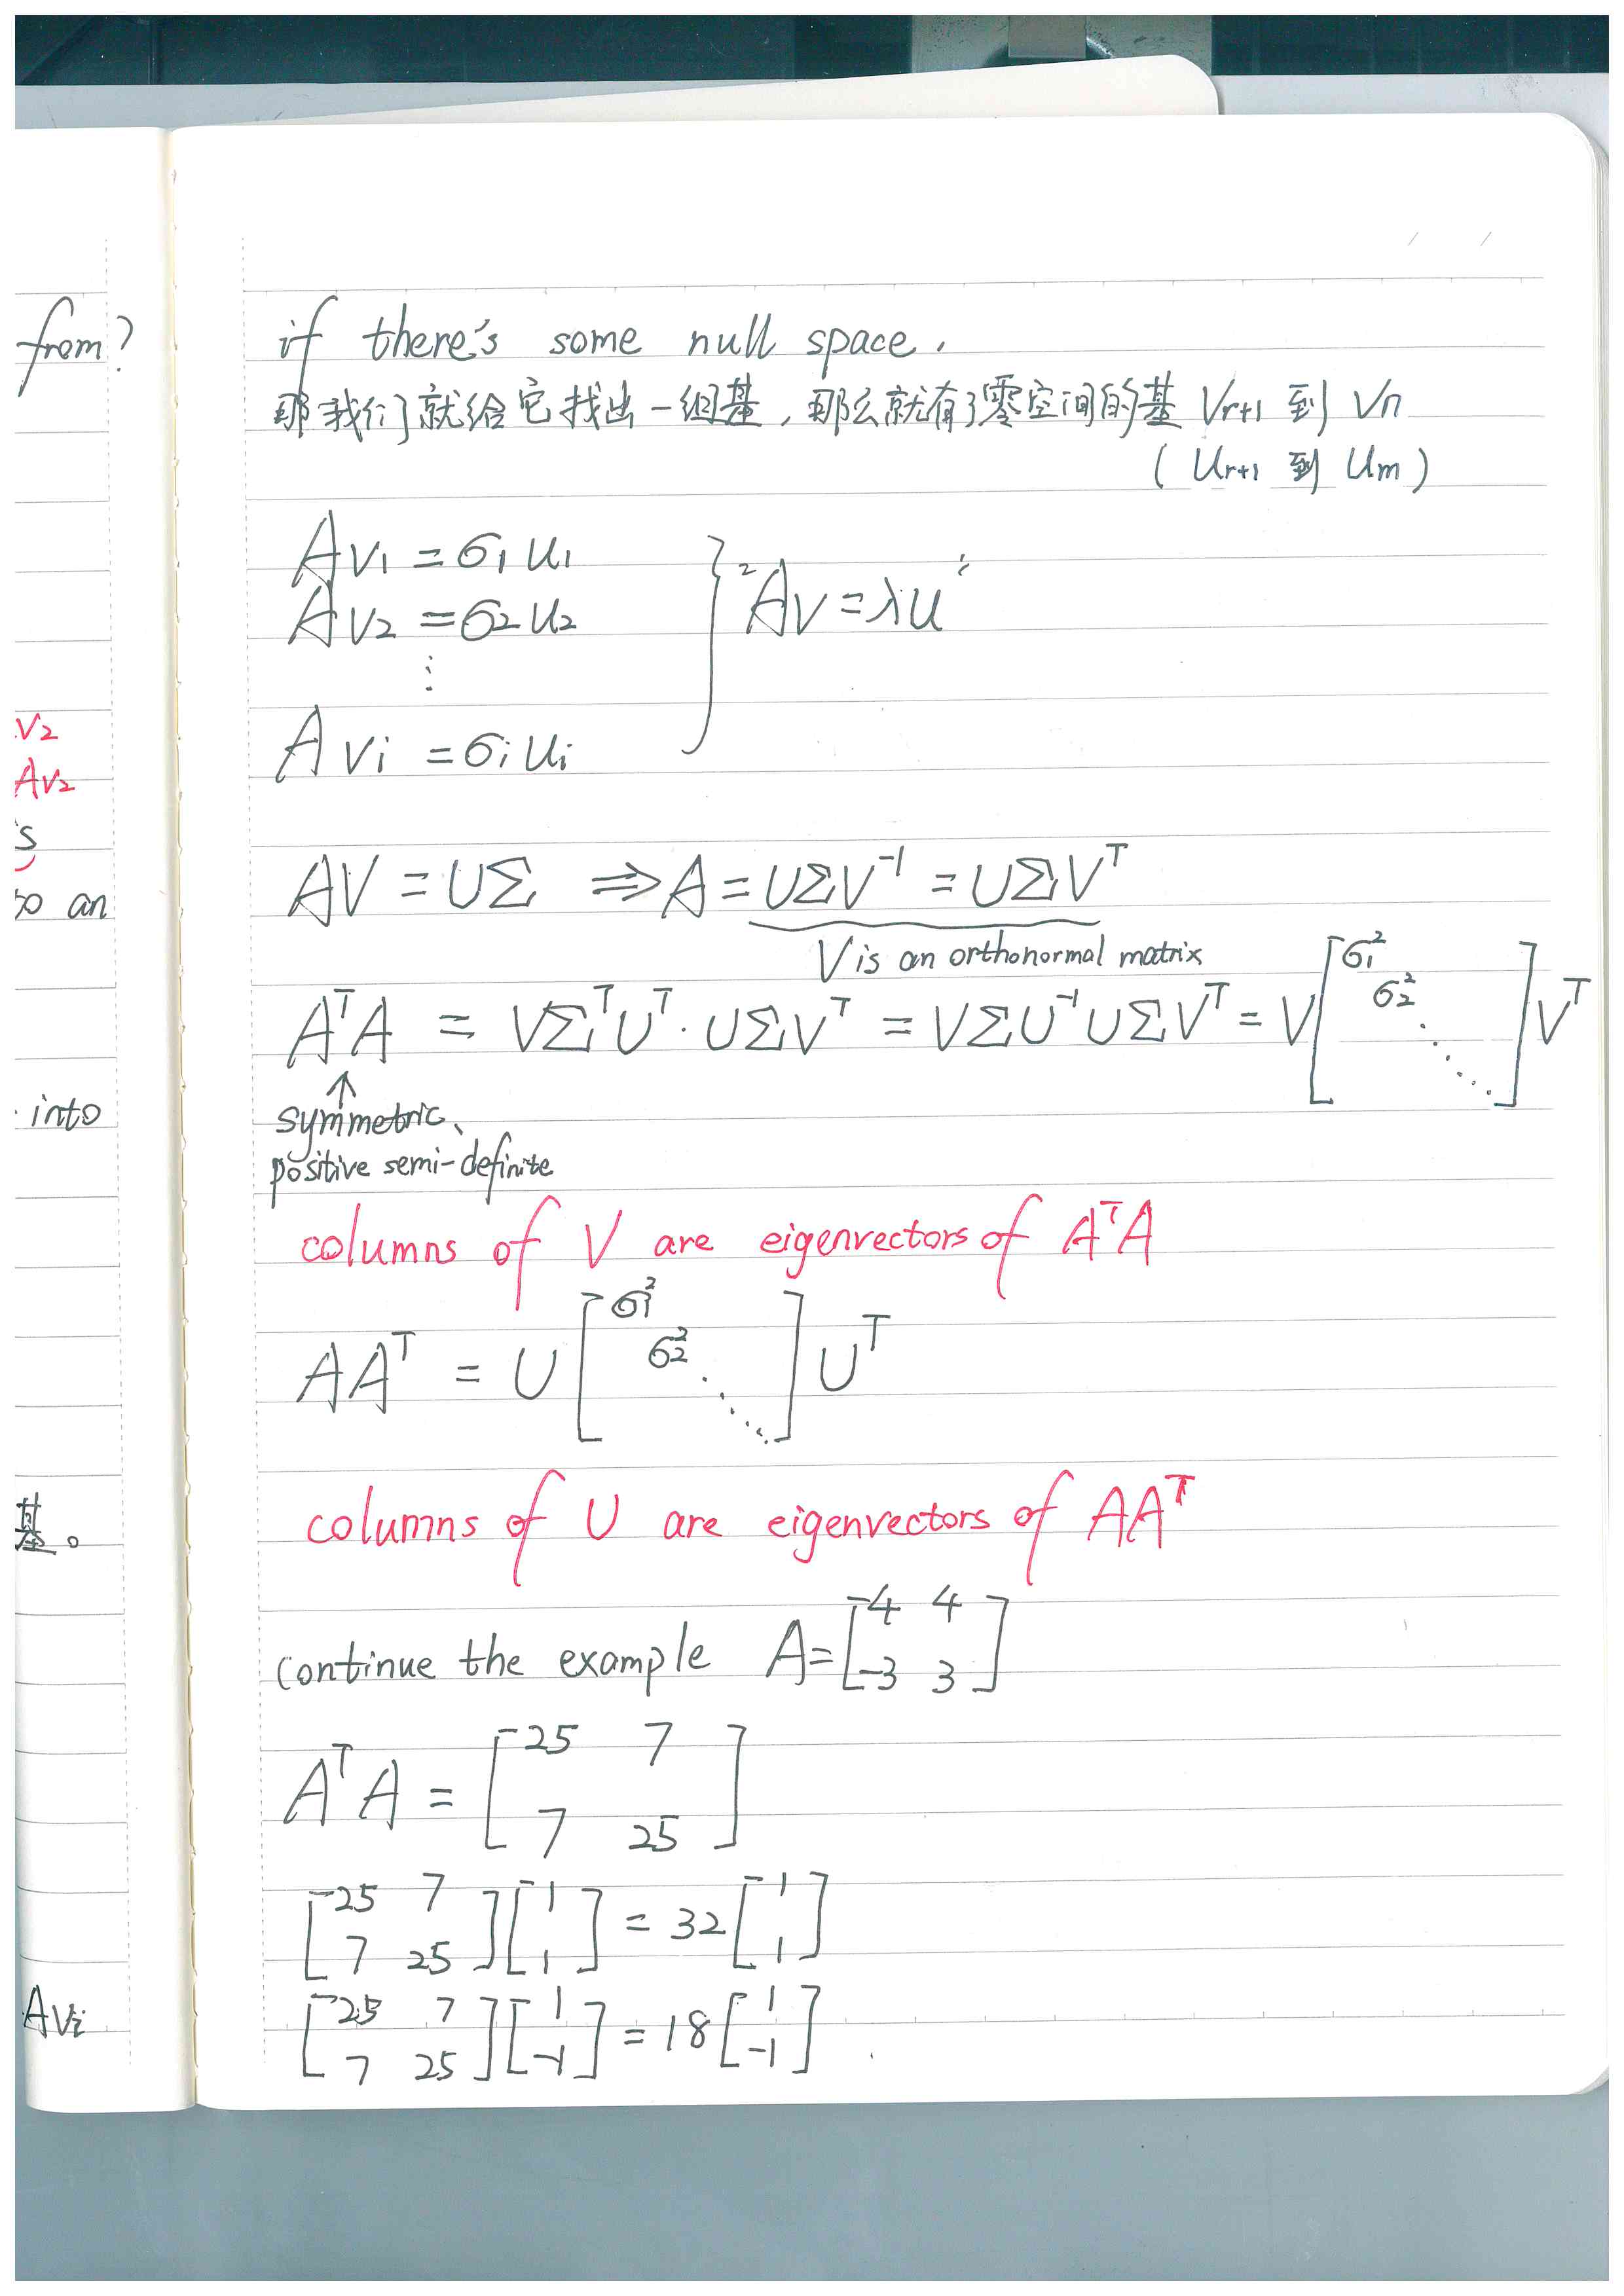 from?
V₂
AV₂
's
to an
into
基。
AVi
if there's some null space.
那我们就给它找出一组基，那么就有了零空间的基 Vr+1 到 Vn
( Ur+1 到 Um )
AV₁ = σ₁u₁
AV₂ = σ₂u₂
⋮
AVi = σiui
} "AV = λu"
AV = UΣ ⇒ A = UΣV⁻¹ = UΣVᵀ
V is an orthonormal matrix
AᵀA = VΣᵀUᵀ · UΣVᵀ = VΣU⁻¹UΣVᵀ = V [σ₁² σ₂² ⋱] Vᵀ
↑
symmetric、
positive semi-definite
columns of V are eigenvectors of AᵀA
AAᵀ = U [σ₁² σ₂² ⋱] Uᵀ
columns of U are eigenvectors of AAᵀ
continue the example A = [4 4
-3 3]
AᵀA = [25 7
7 25]
[25 7
7 25] [1
1] = 32 [1
1]
[25 7
7 25] [1
-1] = 18 [1
-1]